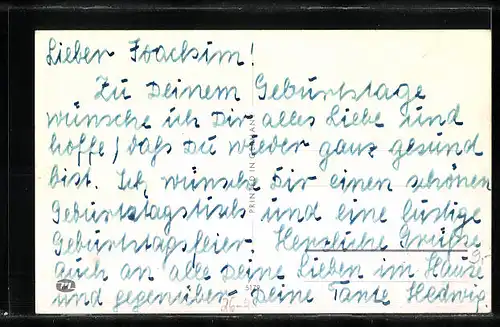 Lieber Joachim!
Zu Deinem Geburtstage
wünsche ich Dir alles Liebe und
hoffe, daß Du wieder ganz gesund
bist. Ich wünsche Dir einen schönen
Geburtstagstisch und eine lustige
Geburtstagsfeier. Herzliche Grüße
auch an alle Deine Lieben im Hause
und gegenüber Deine Tante Hedwig.
PRINTED IN GERMANY